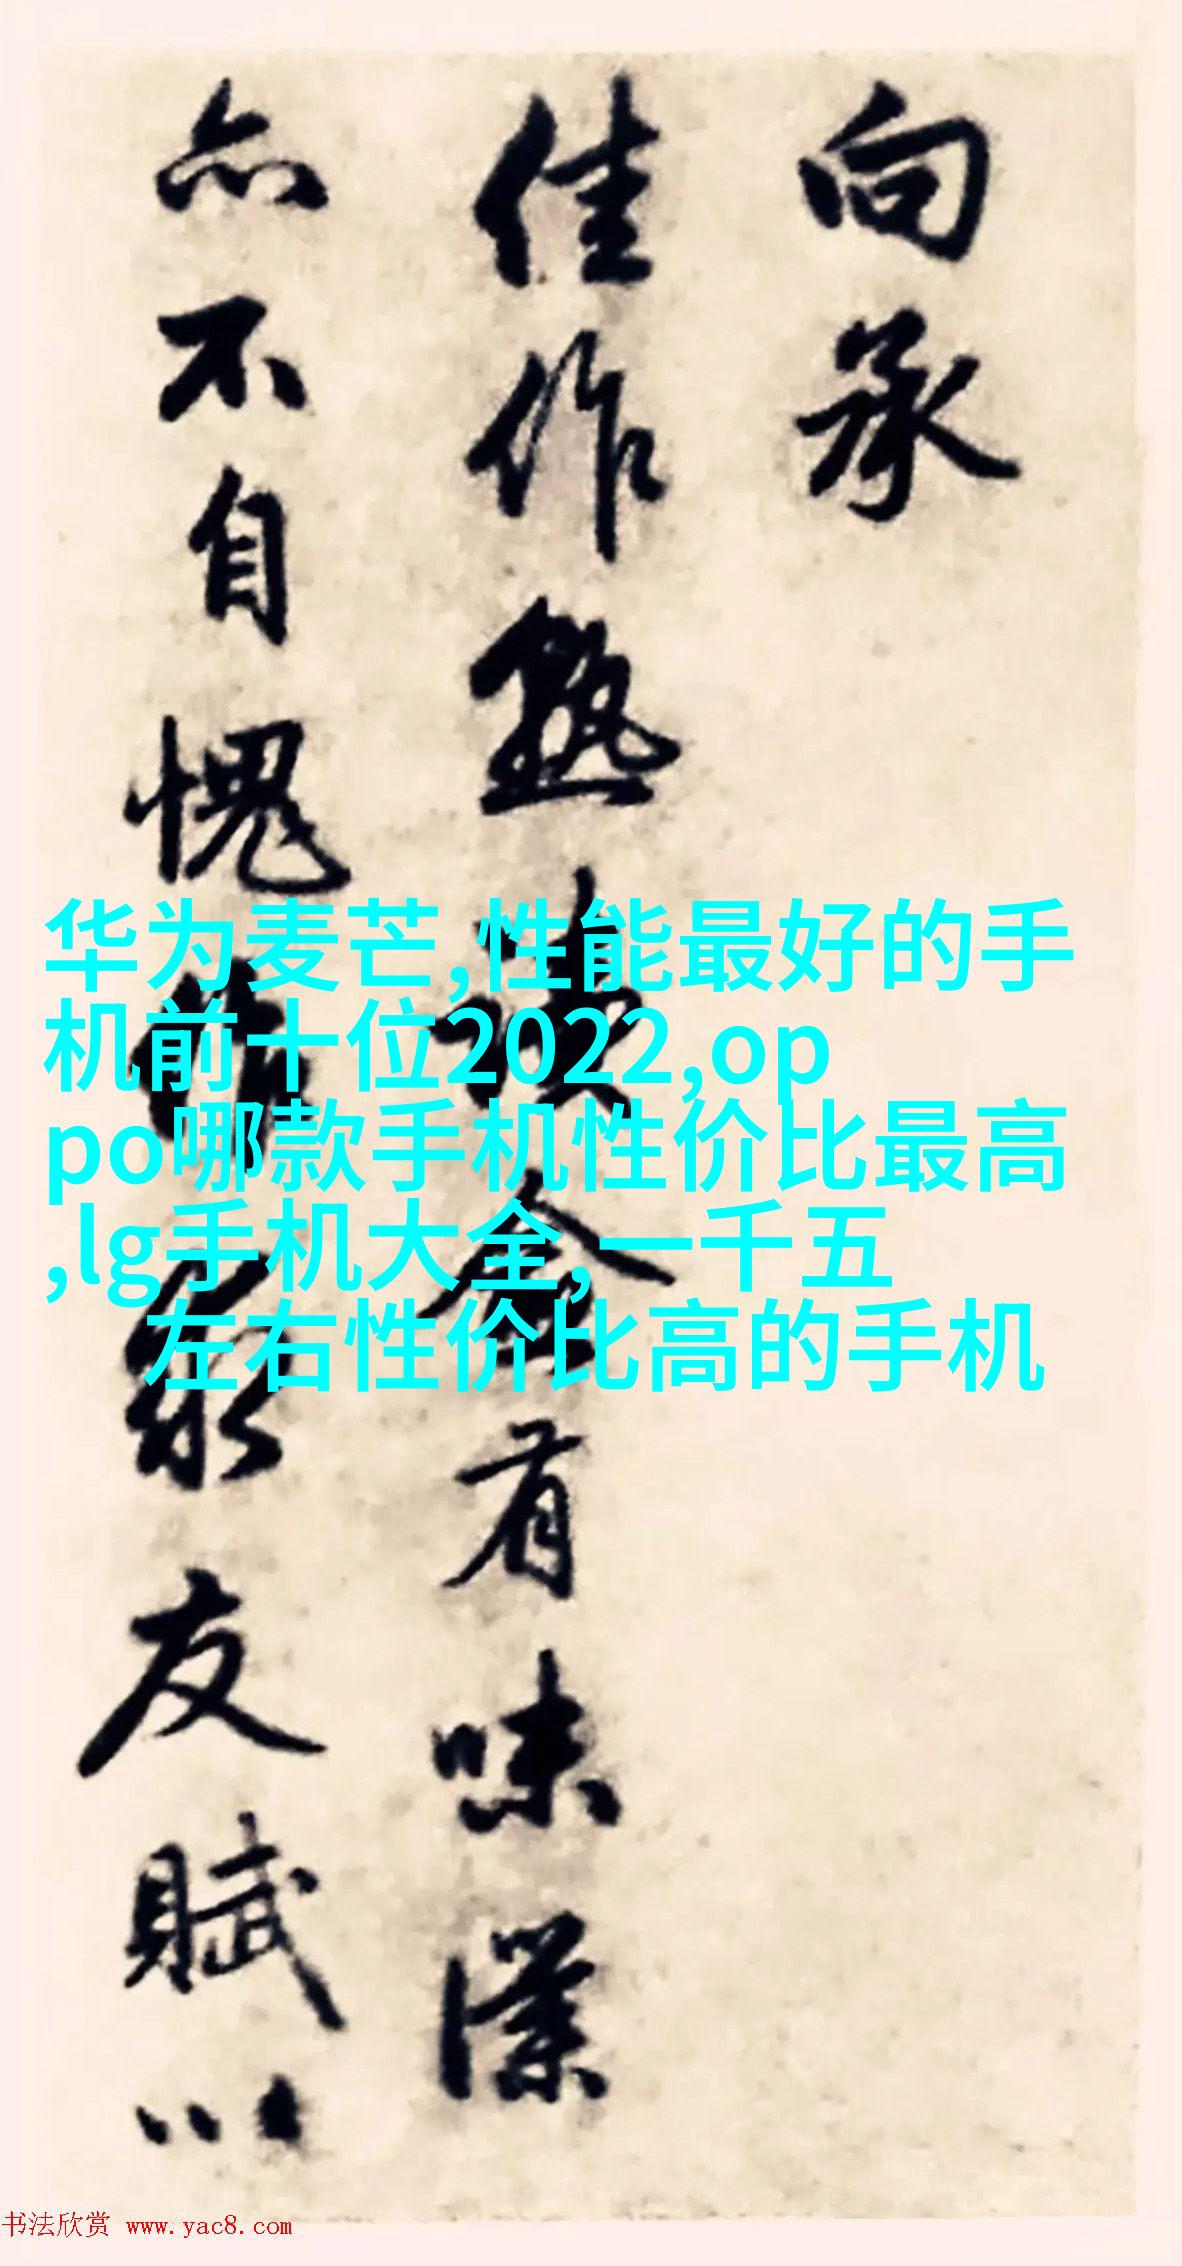 向承
佳作熟读令有味深
亦不自愧
友赋以
华为麦芒,性能最好的手
机前十位2022,op
po哪款手机性价比最高
,lg手机大全,一千五
左右性价比高的手机
书法欣赏 www.yac8.com